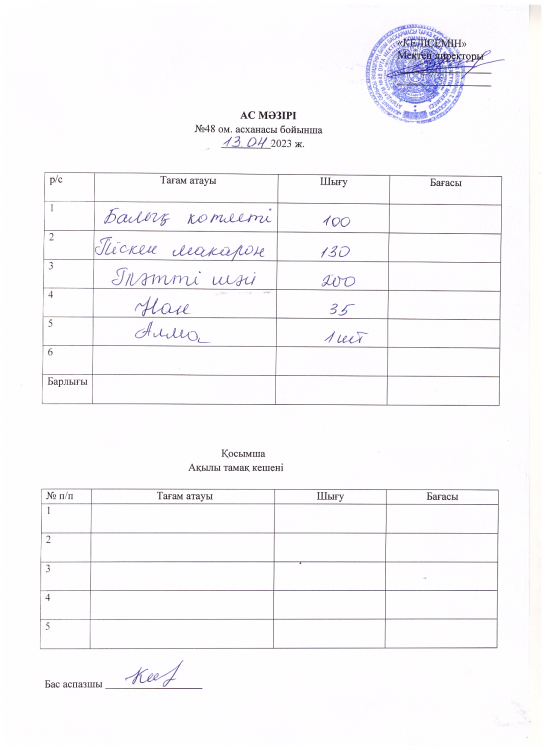 «КЕЛІСЕМІН»
Мектеп директоры
АС МӘЗІРІ
№48 ом. асханасы бойынша
13.04 2023 ж.
р/с Тағам атауы Шығу Бағасы
1 Балық котлеті 100
2 Піскен макарон 130
3 Тәтті шәй 200
4 Нан 35
5 Алма 1 шт
6
Барлығы
Қосымша
Ақылы тамақ кешені
№ п/п Тағам атауы Шығу Бағасы
1
2
3
4
5
Бас аспазшы